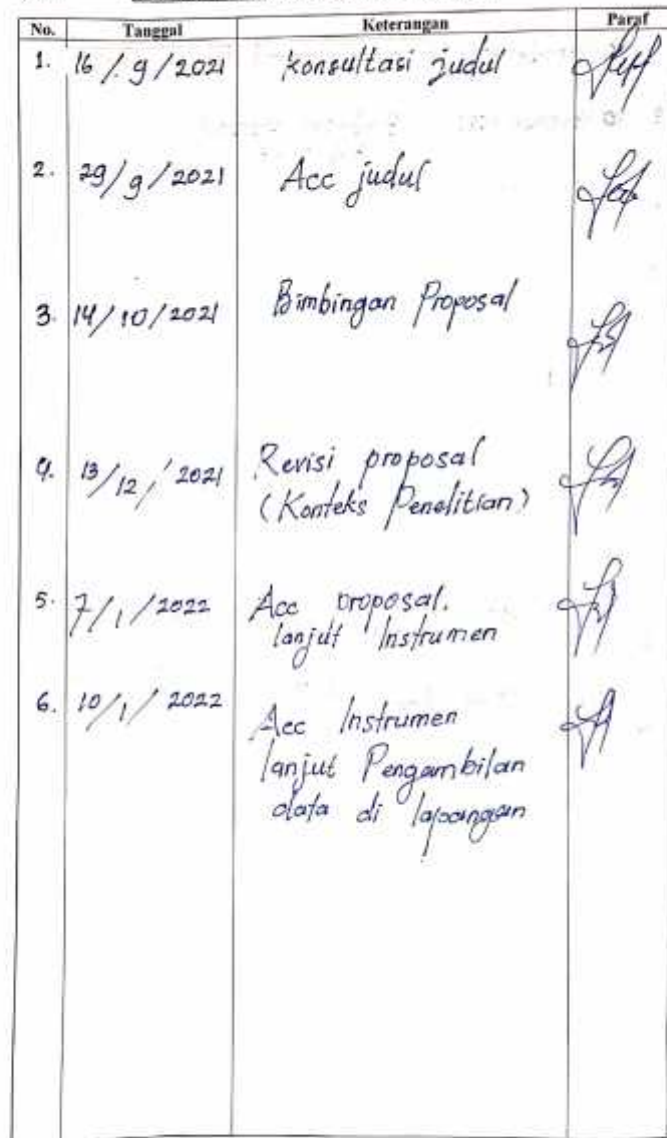 No. Tanggal Keterangan Paraf
1. 16/9/2021 konsultasi judul
2. 29/9/2021 Acc judul
3. 14/10/2021 Bimbingan Proposal
4. 13/12/2021 Revisi proposal
(Konteks Penelitian)
5. 7/1/2022 Acc proposal.
lanjut Instrumen
6. 10/1/2022 Acc Instrumen
lanjut Pengambilan
data di lapangan